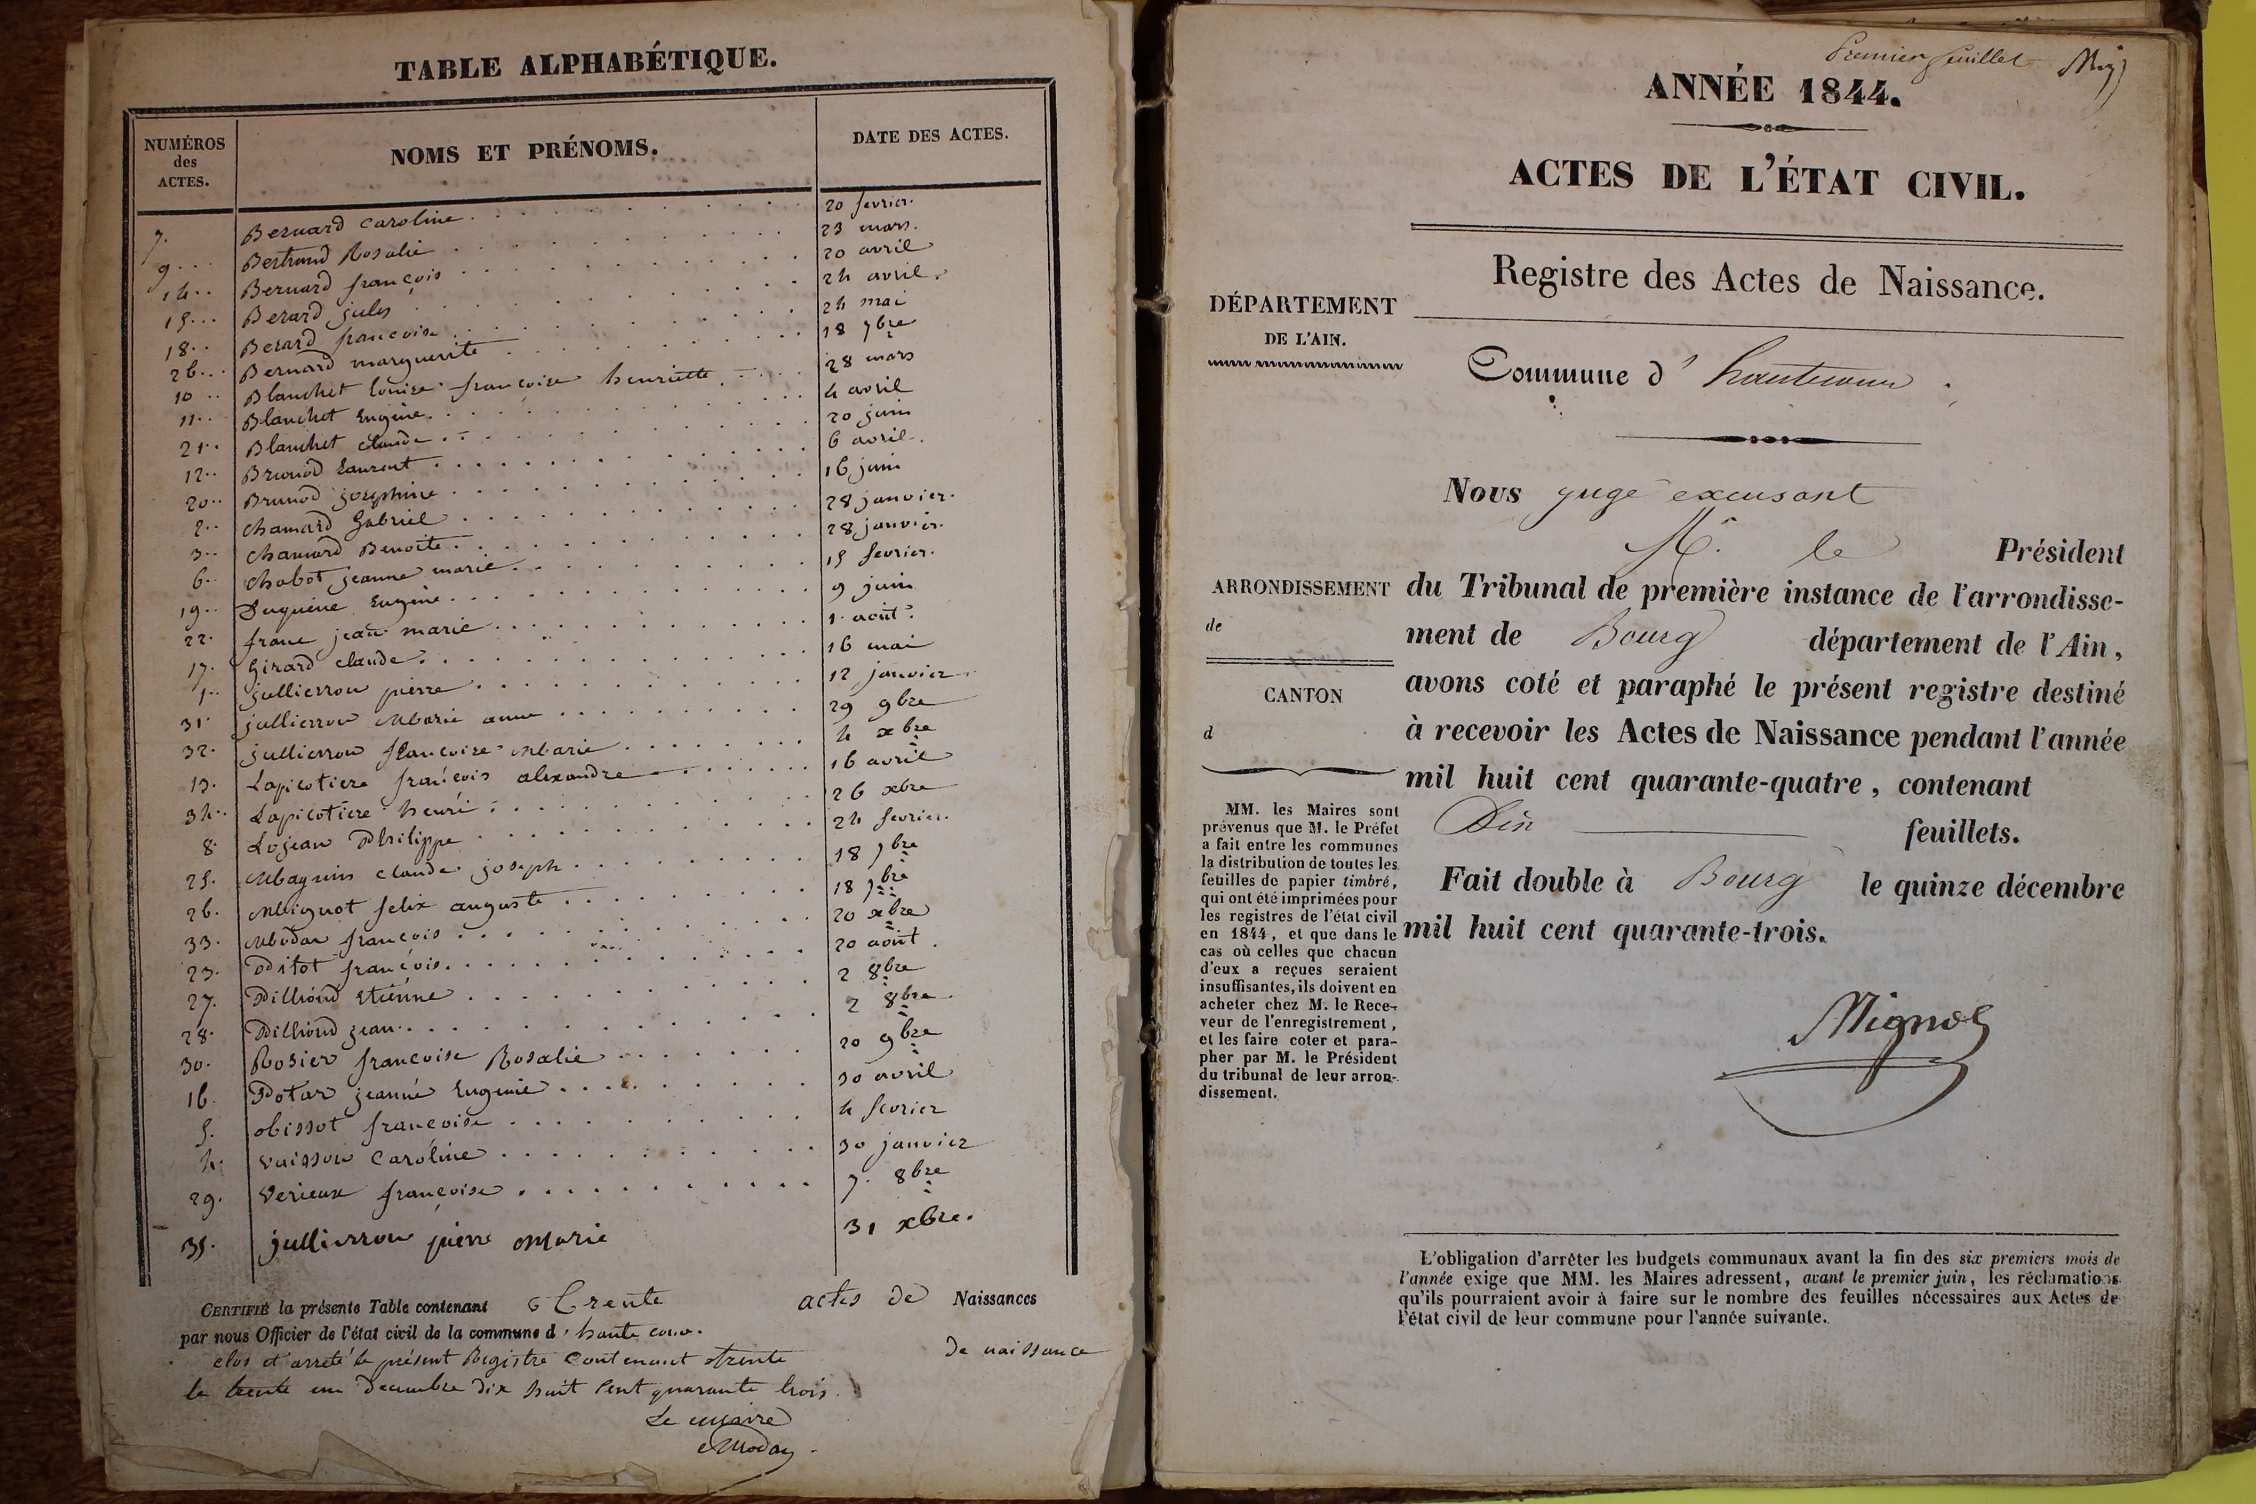 TABLE ALPHABÉTIQUE.
NUMÉROS
des
ACTES.
NOMS ET PRÉNOMS.
DATE DES ACTES.
7. Bernard Caroline 20 fevrier.
9 Bertrand Rosalie 23 mars.
14 Bernard françois 20 avril
15 Berard jules 24 avril.
18 Berard françoise 24 mai
26 Bernard marguerite 18 7bre
10 Blanchet louise françoise henriette 28 mars
11 Blanchet Eugène 4 avril
21 Blanchet claude 20 juin
12 Brunod Laurent 6 avril.
20 Brunod josephine 16 juin
2 Chamard Gabriel 28 janvier.
3 Chamard Benoite 28 janvier.
6 Chabot jeanne marie 15 fevrier.
19 Duquène Eugène 9 juin
22. franc jean marie 1 août.
17. Girard claude 16 mai
1 jullierron pierre 12 janvier
31 jullierron Marie anne 29 9bre
32. jullierron françoise Marie 4 xbre
13. Lapicotiere françois alexandre 16 avril
34 Lapicotiere henri 26 xbre
8 Lojean Philippe 24 fevrier.
25. Maguin claude joseph 18 7bre
26. Mignot felix auguste 18 7bre
33. Modar françois 20 xbre
23. Pitot françois. 20 août.
27. Pilliond etiénne 2 8bre
28. Pilliond jean 2 8bre.
30. Rosier françoise Rosalie 20 9bre
16. Potar jeanne Eugenie 30 avril
5. françoise 4 fevrier
4. Vuisson Caroline 30 janvier
29. Verieux françoise 7. 8bre
35. jullierron pierre Marie 31 xbre.
CERTIFIÉ la présente Table contenant trente actes de Naissances
par nous Officier de l'état civil de la commune d'haute cour.
clos et arreté le présent Registre contenant trente de naissance
le trente un decembre dix huit cent quarante trois.
Le maire
Modar
Premier feuillet
ANNÉE 1844.
ACTES DE L'ÉTAT CIVIL.
Registre des Actes de Naissance.
DÉPARTEMENT
DE L'AIN.
Commune d' hautecour.
Nous juge excusant
M. le Président
ARRONDISSEMENT
de
CANTON
d
du Tribunal de première instance de l'arrondisse-
ment de Bourg département de l'Ain,
avons coté et paraphé le présent registre destiné
à recevoir les Actes de Naissance pendant l'année
mil huit cent quarante-quatre, contenant
Dix feuillets.
Fait double à Bourg le quinze décembre
mil huit cent quarante-trois.
MM. les Maires sont
prévenus que M. le Préfet
a fait entre les communes
la distribution de toutes les
feuilles de papier timbré,
qui ont été imprimées pour
les registres de l'état civil
en 1844, et que dans le
cas où celles que chacun
d'eux a reçues seraient
insuffisantes, ils doivent en
acheter chez M. le Rece-
veur de l'enregistrement,
et les faire coter et para-
pher par M. le Président
du tribunal de leur arron-
dissement.
Mignot
L'obligation d'arrêter les budgets communaux avant la fin des six premiers mois de
l'année exige que MM. les Maires adressent, avant le premier juin, les réclamations
qu'ils pourraient avoir à faire sur le nombre des feuilles nécessaires aux Actes de
l'état civil de leur commune pour l'année suivante.